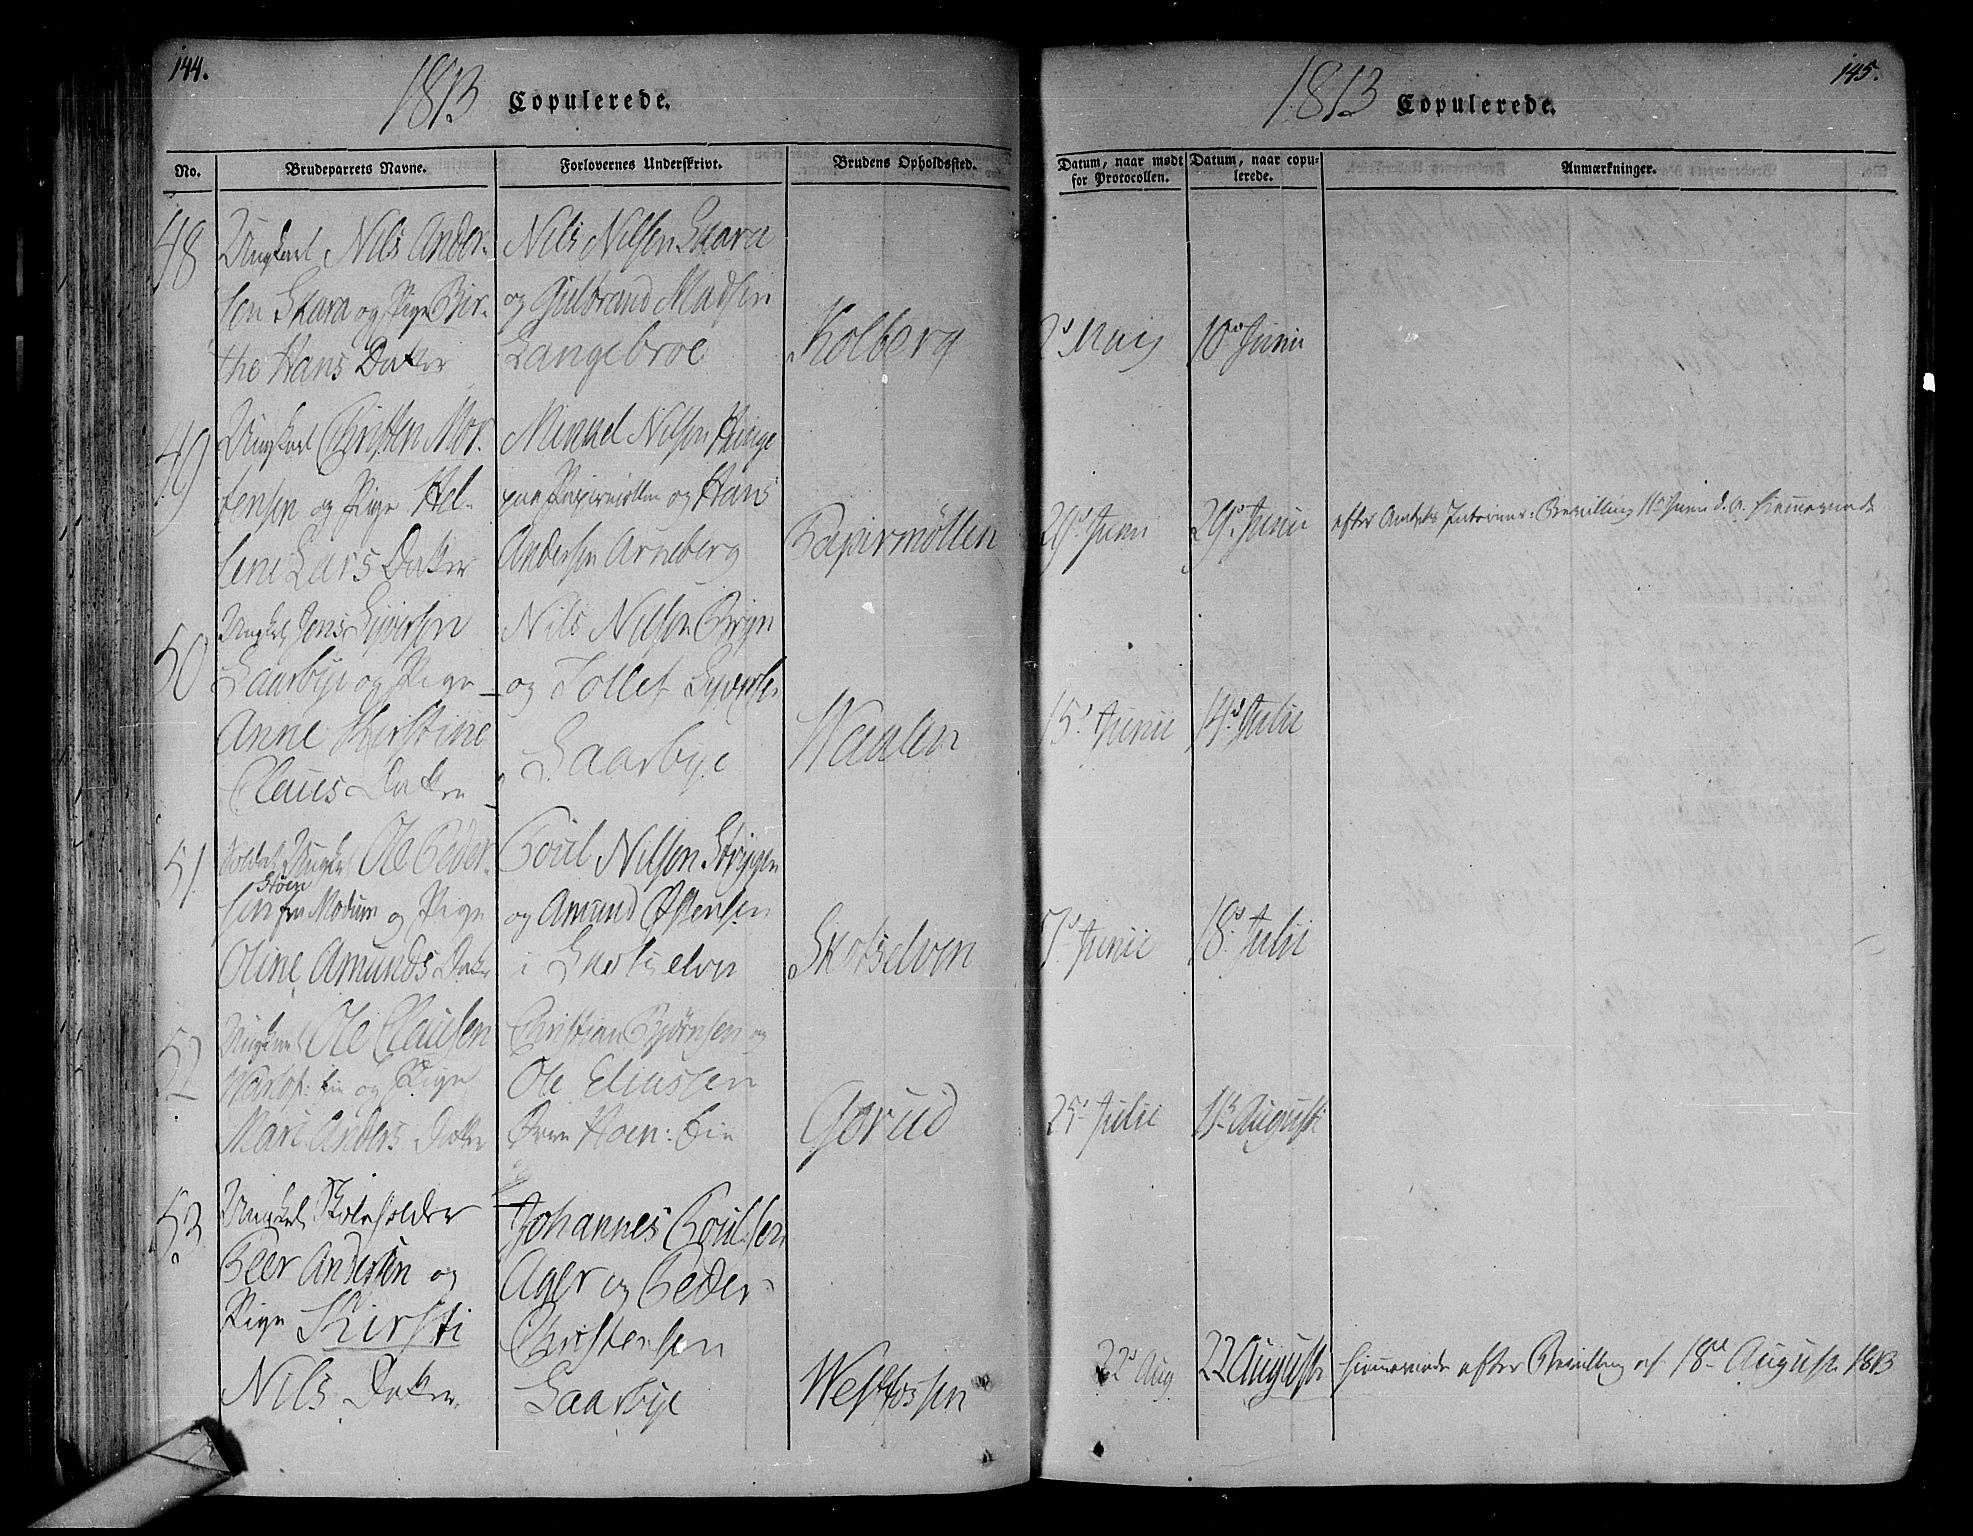 144.
1813 Copulerede.
No.
Brudeparrets Navne.
Forlovernes Underskrivt.
Brudens Opholdssted.
48
Ungkarl Nils Ander-
sen Skara og Pige Bir-
the Hans Datter
Nils Nilsen Skara
og Gulbrand Madsen
Langebroe
Kolberg
49
Ungkarl Christen Mor-
tensen og Pige Hel-
lene Lars Datter
Nilsen
Papirmøllen og Hans
Andersen Arneberg
Papirmöllen
50
Ungkl Jens Syversen
Saarbye og Pige
Anne Kirstine
Claus Datter
Nils Nilsen Bryn
og Tollef Syvers.
Saarbye
51.
Soldat Ungkl Ole Peder-
Stoen
sen fra Modum og Pige
Oline Amunds Datr
Poul Nilsen Strygen
og Amund Østensen
i Skotselven
Skotselven
52
Ungkarl Ole Clausen
og Pige
Mari Anders Datter
Christian Bjørnsen og
Ole Eliassen
Øvre Hoen: Eie
Gorud
53.
Ungkl Skoleholder
Peer Andersen og
Pige Kirsti
Nils Datter.
Johannes Poulsen
Ager og Peder
Christensen
Saarbye
Westfossen
145.
1813 Copulerede.
Datum, naar mødt
for Protocollen.
Datum, naar copu-
lerede.
Anmærkninger.
2d Maij
10de Junii
29d Junii
29d Junii
efter Amtets Bevilling 11te Junii d. A. hjemmeviede
15d Junii
14d Julii
18d Julii
25d Julii
13 Augusti
22d Aug
22 Augusti
hjemmeviede efter Bevilling af 18de August 1813